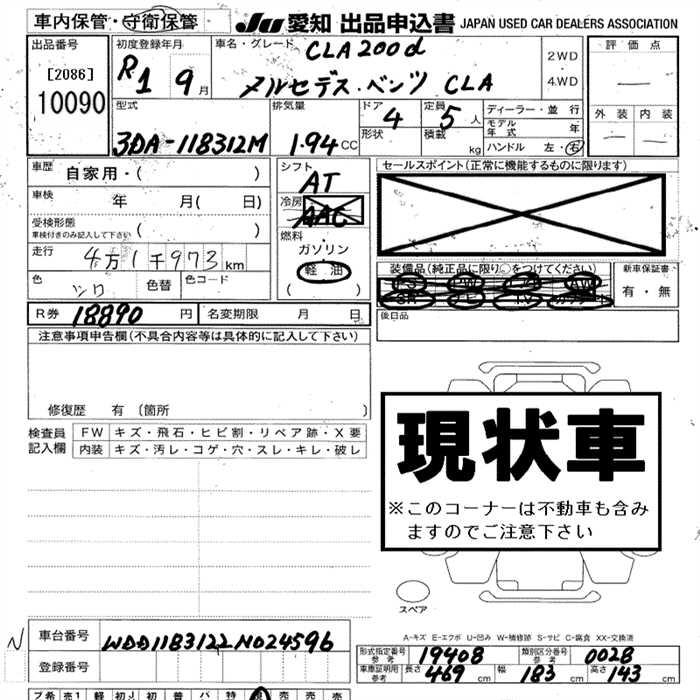 車内保管・守衛保管
JU 愛知 出品申込書 JAPAN USED CAR DEALERS ASSOCIATION
出品番号 初度登録年月 車名・グレード CLA200d 2WD 評価点
[2086] R1 9月 メルセデス・ベンツ CLA 4WD —
10090 型式 排気量 ドア 4 定員 5人 ディーラー・並行 外装 内装
3DA-118312M 1.94CC 形状 積載 kg モデル年式 年 — —
ハンドル 左・右
車歴 自家用・( ) シフト AT セールスポイント(正常に機能するものに限ります)
車検 年 月( 日) 冷房 AAC
受検形態 ( )
車検付きのみ記入して下さい
燃料 ガソリン
走行 4万1千973km 軽油 装備品(純正品に限り○をつけてください) 新車保証書
色 シロ 色替 色コード ( ) 有・無
R券 18890円 名変期限 月 日 後日品
注意事項申告欄(不具合内容等は具体的に記入して下さい)
修復歴 有 〔箇所 〕
検査員記入欄 FW キズ・飛石・ヒビ割・リペア跡・X要
内装 キズ・汚レ・コゲ・穴・スレ・キレ・破レ
現状車
※このコーナーは不動車も含み
ますのでご注意下さい
スペア
A-キズ E-エクボ U-凹み W-補修跡 S-サビ C-腐食 XX-交換済
N 車台番号 WDD1183122N024596 形式指定番号 参考 19408 類別区分番号 参考 0028
登録番号 車庫証明用 参考 長さ 469cm 幅 183cm 高さ 143cm